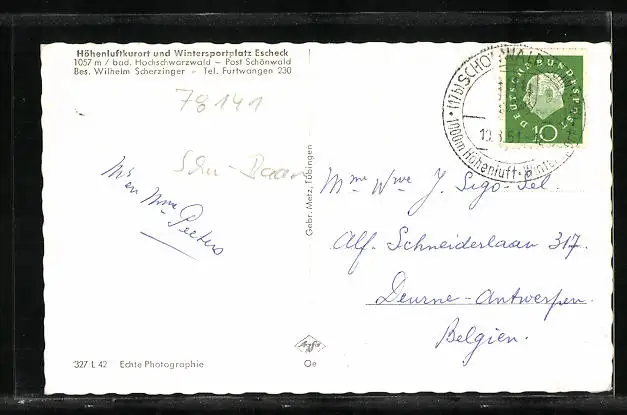 Höhenluftkurort und Wintersportplatz Escheck
1057 m / bad. Hochschwarzwald – Post Schönwald
Bes. Wilhelm Scherzinger – Tel. Furtwangen 230
78141
Mr
en Mme Peeters
Gebr. Metz, Tübingen
(17b) SCHÖNWALD
1000m Höhenluft · Winter
DEUTSCHE BUNDESPOST
10
Mme Wwe J. Sigo-Sel.
Alf. Schneiderlaan 317.
Deurne-Antwerpen.
Belgien.
Agfa
Oe
327 L 42 Echte Photographie